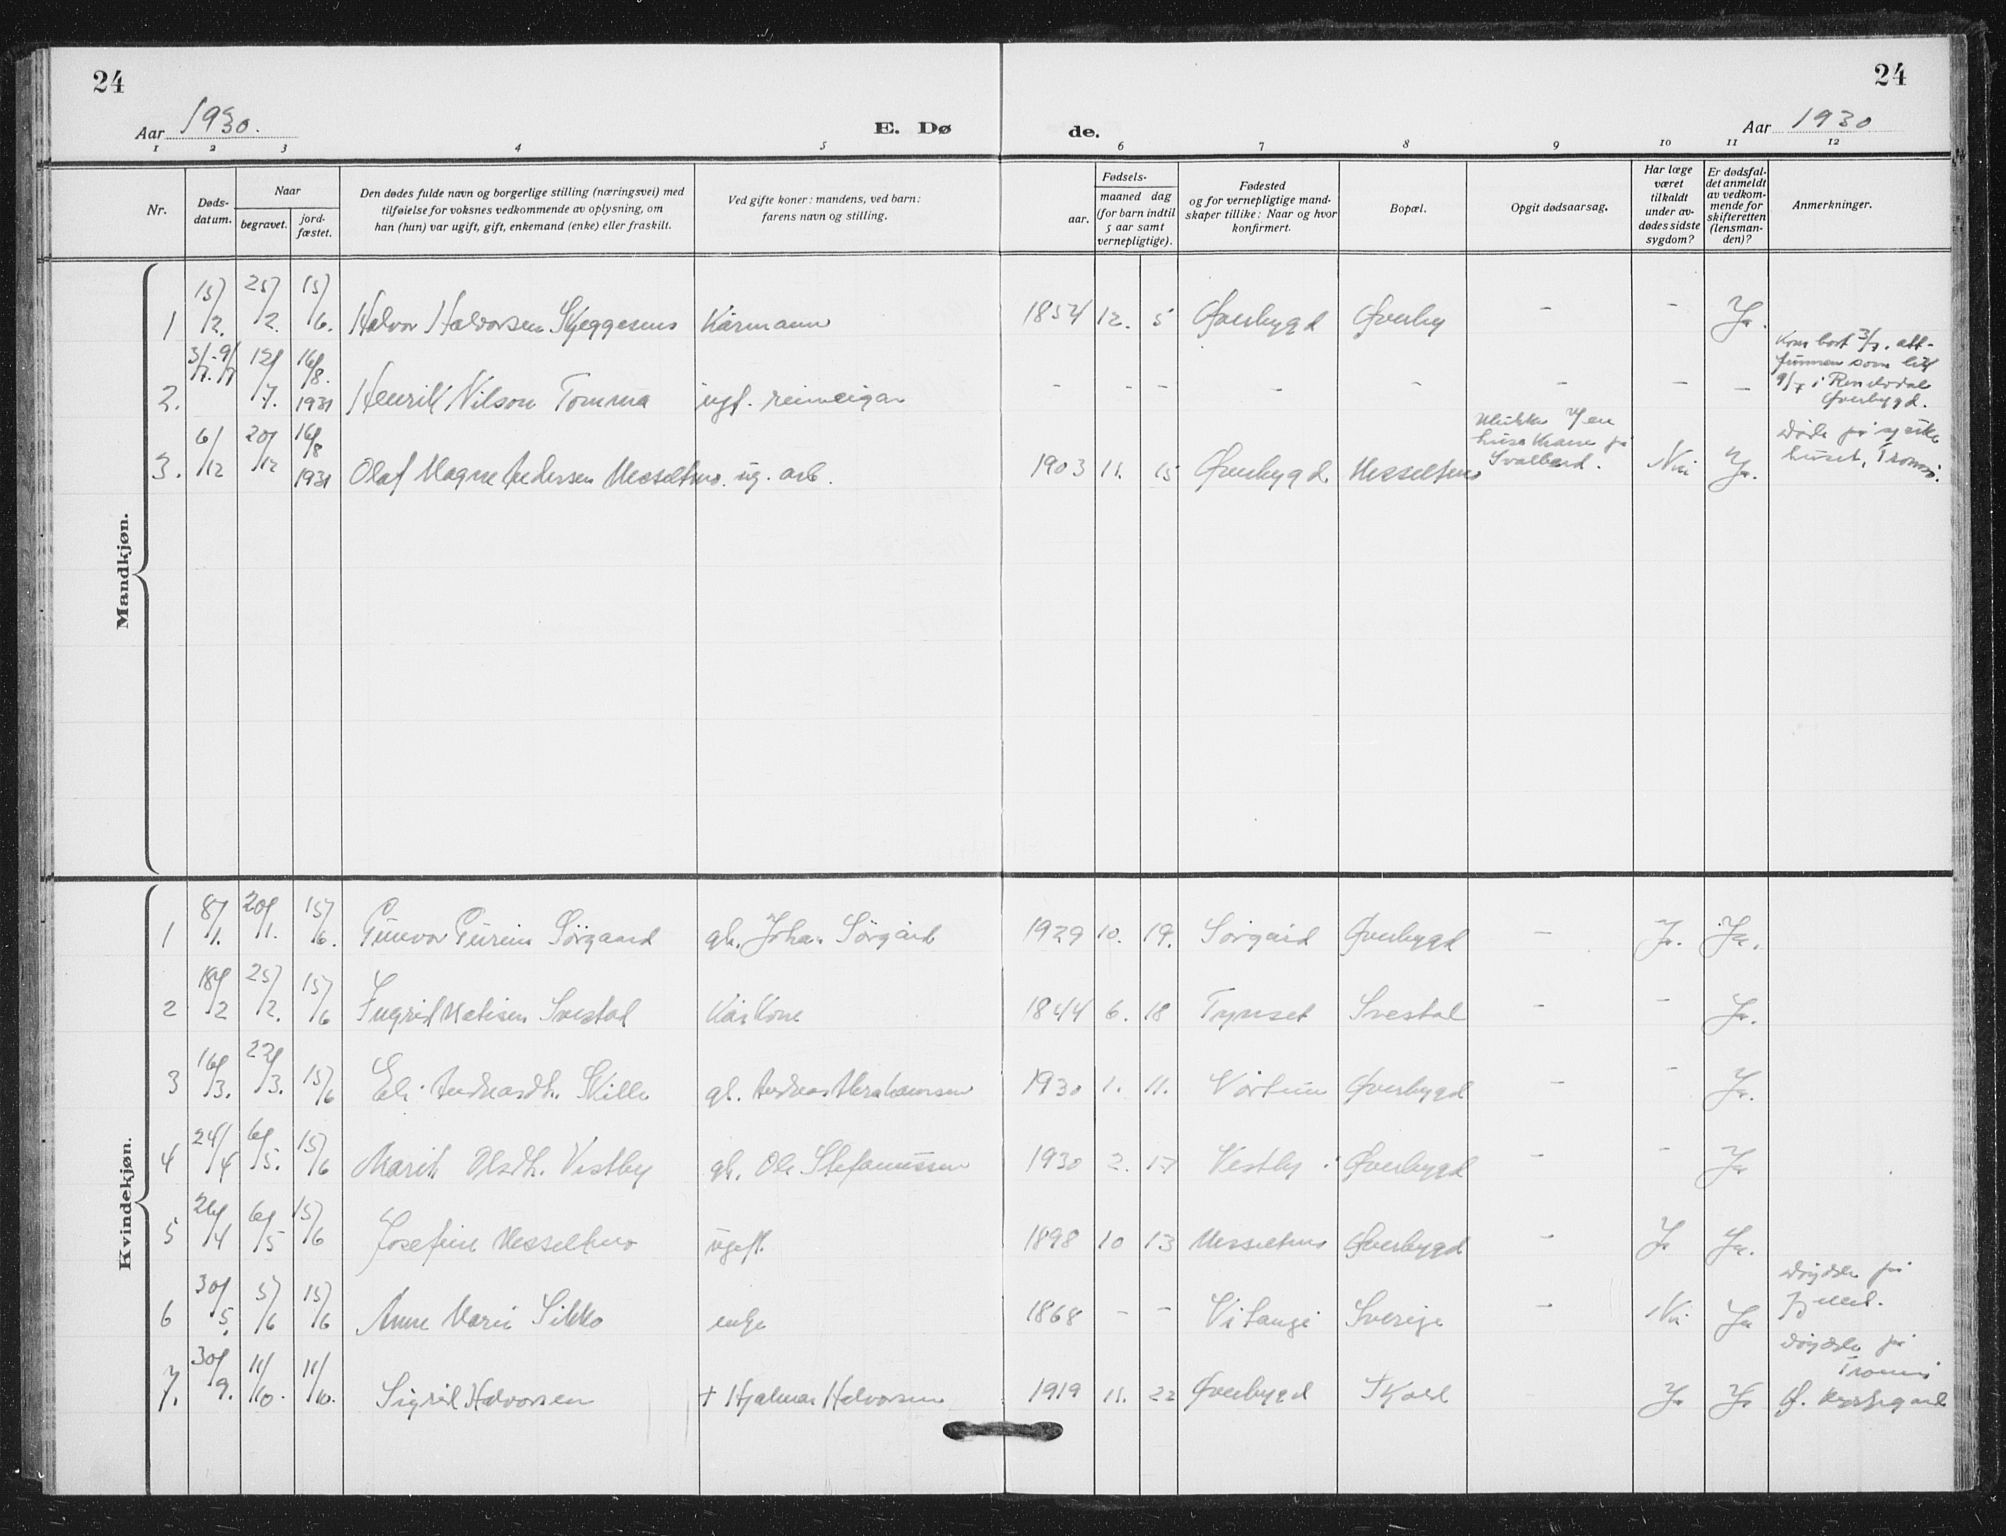 24
24
Aar 1930.
E. Dø
de.
Aar 1930
1 2 3 4 5 6 7 8 9 10 11 12
Nr.
Døds-
datum.
Naar
begravet.
jord-
fæstet.
Den dødes fulde navn og borgerlige stilling (næringsvei) med
tilføielse for voksnes vedkommende av oplysning, om
han (hun) var ugift, gift, enkemand (enke) eller fraskilt.
Ved gifte koner: mandens, ved barn:
farens navn og stilling.
Fødsels-
aar.
maaned dag
(for barn indtil
5 aar samt
vernepligtige).
Fødested
og for vernepligtige mand-
skaper tillike: Naar og hvor
konfirmert.
Bopæl.
Opgit dødsaarsag.
Har læge
været
tilkaldt
under av-
dødes sidste
sygdom?
Er dødsfal-
det anmeldt
av vedkom-
mende for
skifteretten
(lensman-
den)?
Anmerkninger.
Mandkjøn.
1 15/2. 25/2. 15/6. Halvor Halvorsen Skjeggesnes Kårmann 1854 12. 5 Øverbygd Øverby - - Ja.
2. 3/7.-9/7 12/7. 16/8. 1931 Henrik Nilson Tomma ugf. reineigar - - - - - - - - Kom bort 3/7. att-
funnen som lik
9/7 i Rendodal
Øverbygd.
3. 6/12 20/12 16/8 1931 Olaf Magne Andersen Messeltmo. ug. arb. 1903 11. 15 Øverbygd Messeltmo
Svalbard. Nei Ja.
huset, Tromsø.
Kvindekjøn.
1 8/1. 20/1. 15/6. Gunvor Gurine Sørgaard gb. Johan Sørgård 1929 10. 19. Sørgård Øverbygd - Ja. Ja.
2 18/2 25/2. 15/6 Ingrid Matisen Svestad Kårkone 1844 6. 18 Tynset Svestad - - Ja.
3 16/3. 22/3. 15/6 Eli Andreasdh. Skille gb. Andreas Abrahamsen 1930 1. 11. Nortun Øverbygd - - Ja.
4 24/4 6/5. 15/6 Marit Olsdh. Vestby gb. Ole Stefanussen 1930 2. 17 Vestby i Øverbygd - - Ja
5 26/4 6/5 15/6 Josefine Messeltmo ugift 1898 10 13 Messeltmo Øverbygd - Ja Ja.
6 30/5. 5/6 15/6 Anne Marie Sikko enke 1868 - - Vitangi Sverige - Nei Ja Døydde på
fjellet.
7. 30/9. 11/10. 11/10. Sigrid Halvorsen + Hjalmar Halvorsen 1919 11. 22 Øverbygd Skjold Ja Ja Døydde på
Tromsø